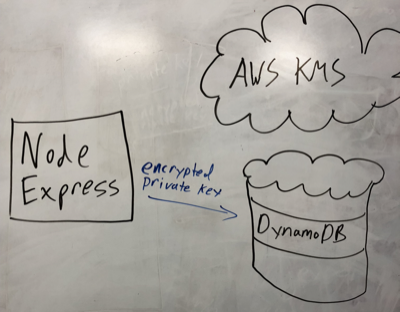 AWS KMS
Node
Express
encrypted
private key
DynamoDB